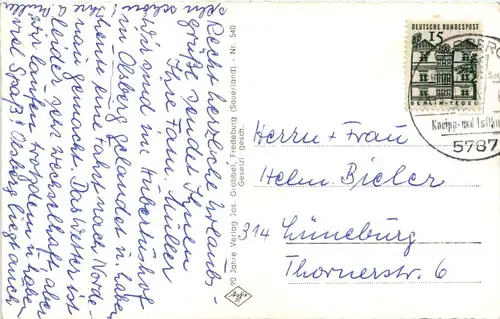 Recht herzliche Urlaubs-
grüße sendet Ihnen
Ihre Fam. Müller
Wir sind im Hubertushof
in Olsberg gelandet u. haben
heute eine Fahrt nach Norde-
nau gemacht. Das Wetter ist
leider sehr wechselhaft, aber
wir laufen trotzdem u. haben
viel Spaß! Olsberg liegt auch
sehr schön!
90 Jahre Verlag Jos. Grobbel, Fredeburg (Sauerland) - Nr. 540
Gesetzl. gesch.
DEUTSCHE BUNDESPOST
15
BERLIN-TEGEL
Kneipp- und Luftku
5787
Herrn + Frau
Helm. Bieler
314 Lüneburg
Thornerstr. 6